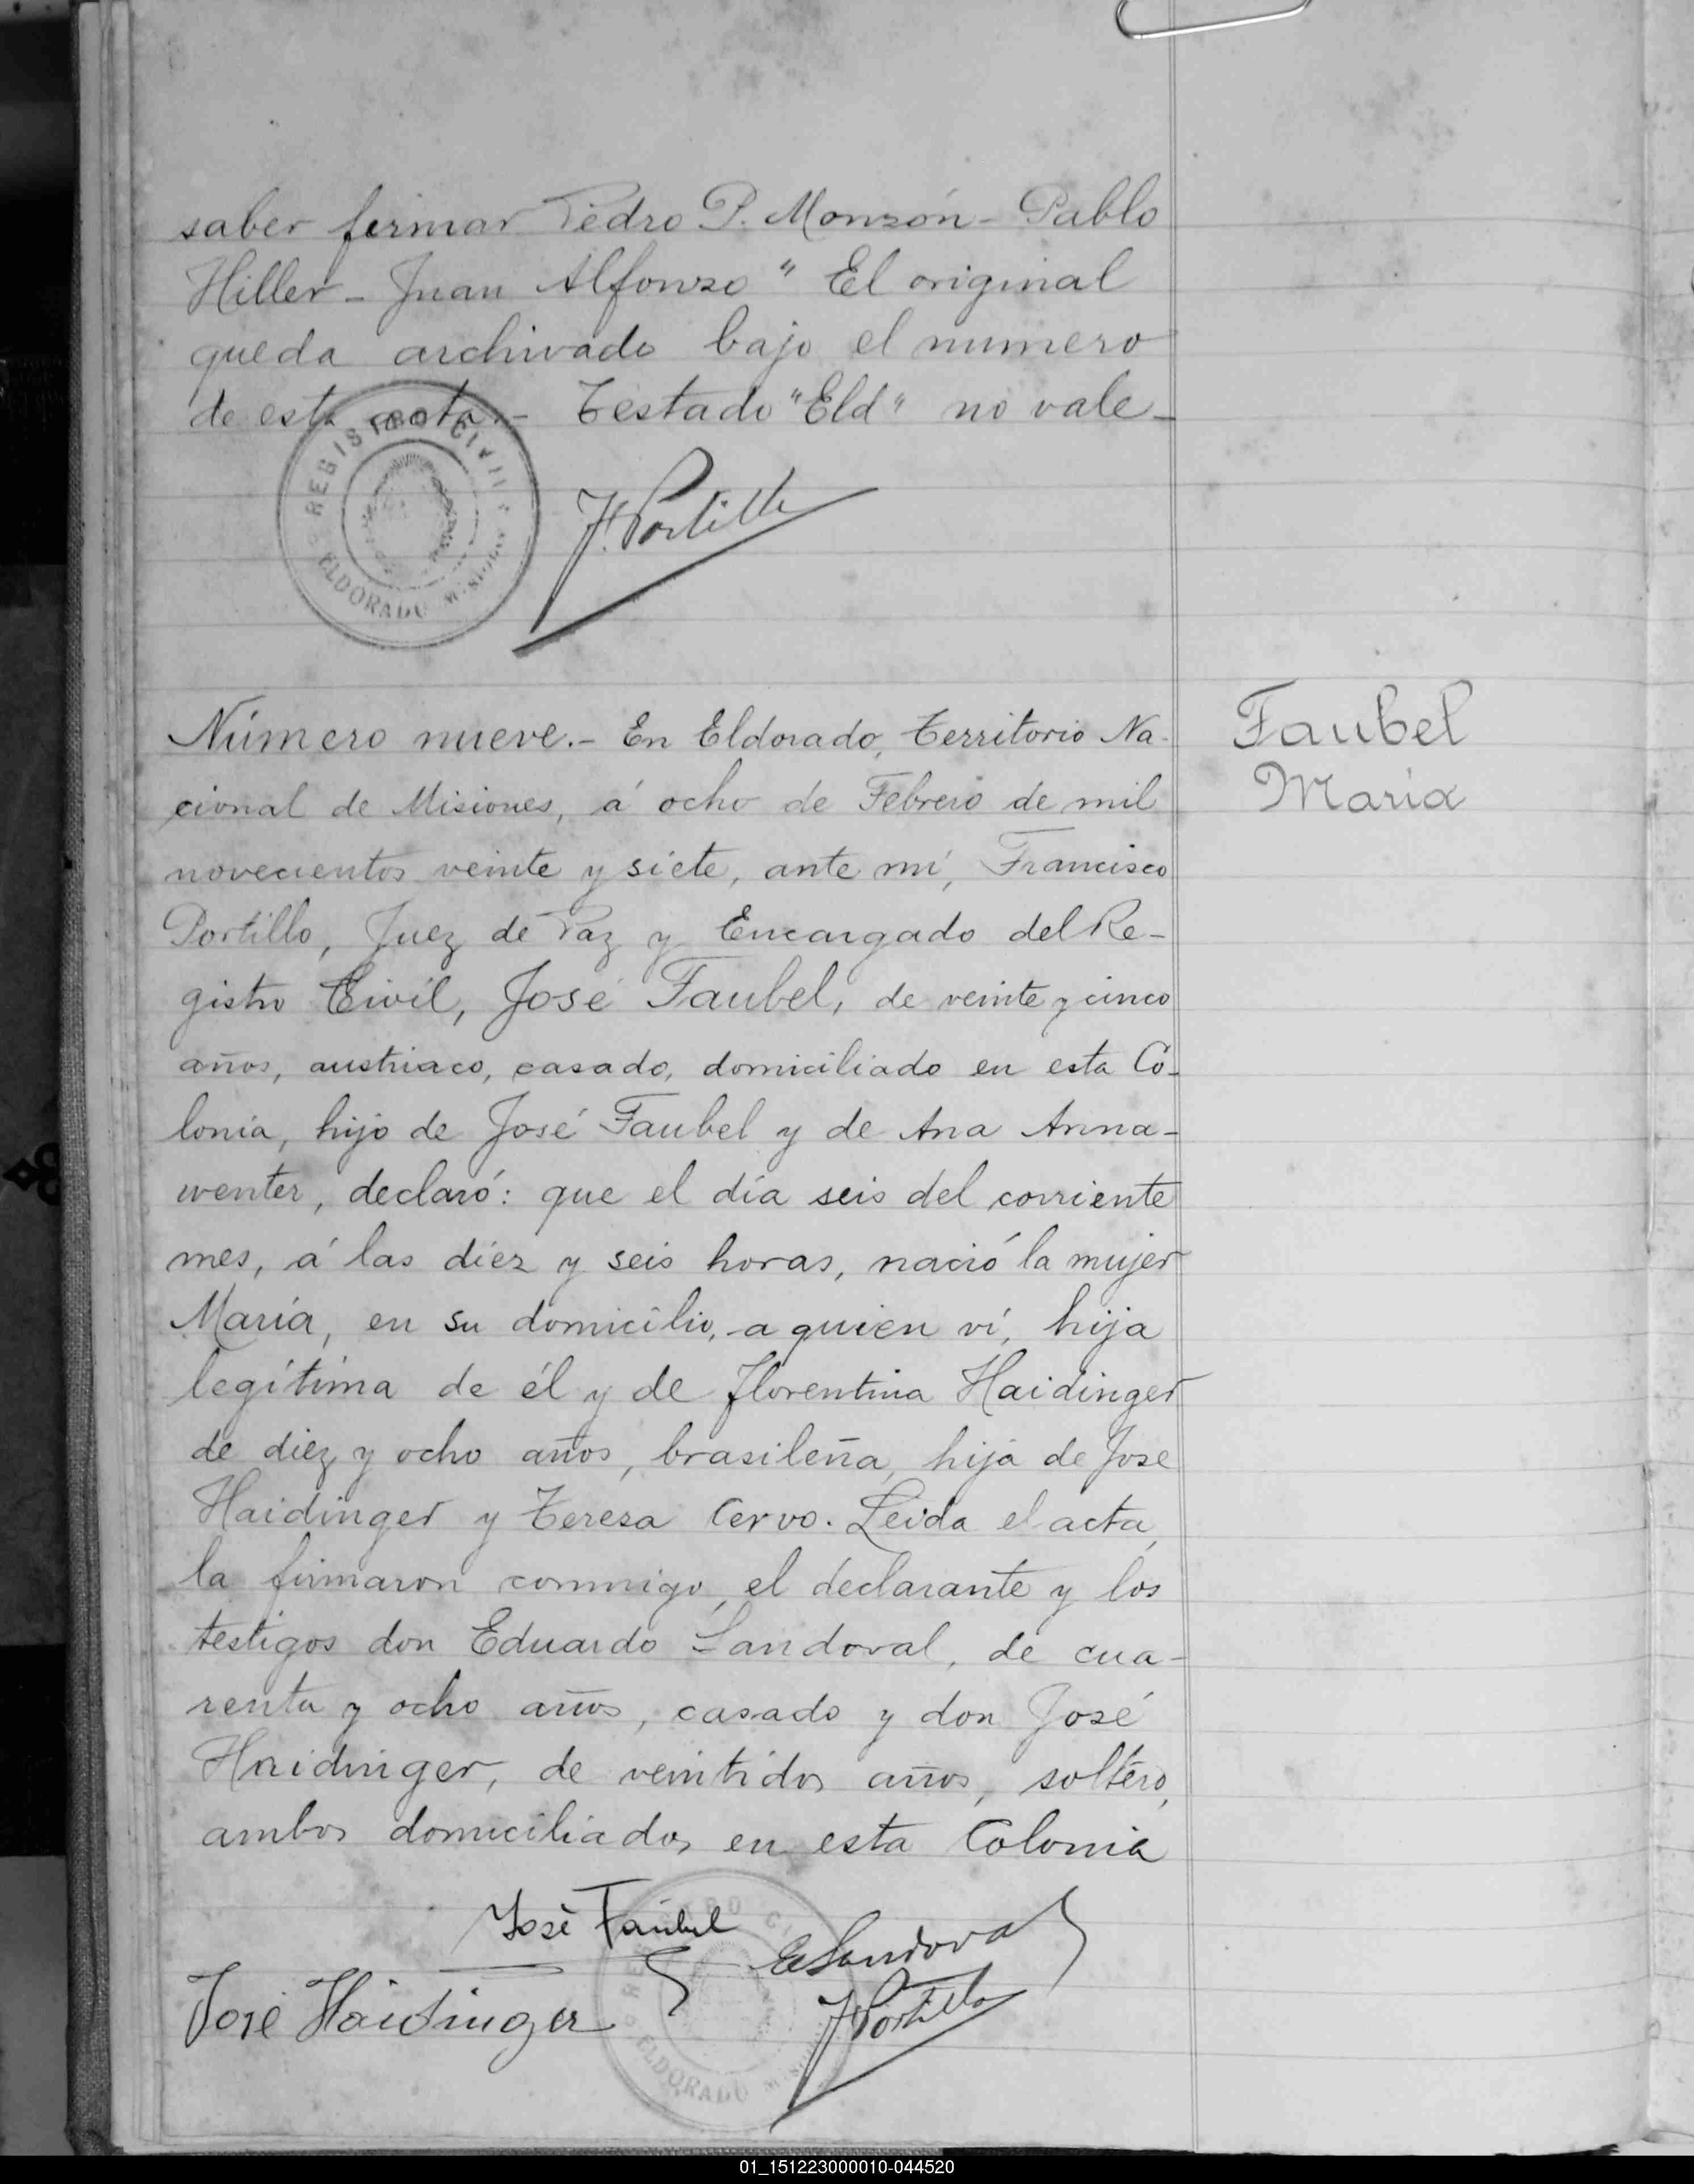 saber firmar Pedro P. Monzón - Pablo
Hiller - Juan Alfonzo " El original
queda archivado bajo el numero
de esta acta.- Testado "Eld" no vale -
REGISTRO CIVIL
ELDORADO MISIONES
F. Portillo
Número nueve.- En Eldorado, Territorio Na-
cional de Misiones, á ocho de Febrero de mil
novecientos veinte y siete, ante mí, Francisco
Portillo, Juez de Paz y Encargado del Re-
gistro Civil, José Faubel, de veinte y cinco
años, austriaco, casado, domiciliado en esta Co-
lonia, hijo de José Faubel y de Ana Anna-
wenter, declaró: que el día seis del corriente
mes, á las diez y seis horas, nació la mujer
María, en su domicilio, a quien ví, hija
legítima de él y de Florentina Haidinger
de diez y ocho años, brasileña, hija de Jose
Haidinger y Teresa Cervo. Leida el acta,
la firmaron conmigo, el declarante y los
testigos don Eduardo Sandoval, de cua-
renta y ocho años, casado y don José
Haidinger, de veintidos años, soltero,
ambos domiciliados en esta Colonia
José Faubel
E Sandoval
José Haidinger
F Portillo
ELDORADO
Faubel
María
01_151223000010-044520